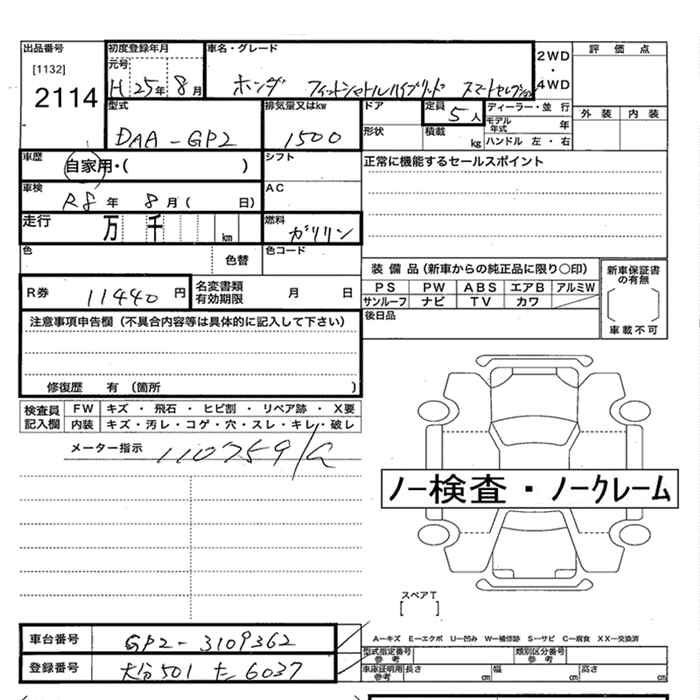 出品番号 初度登録年月 車名・グレード 2WD・4WD 評価点
[1132] 元号
2114 H 25年 8月 ホンダ フィットシャトルハイブリッド スマートセレクション
型式 排気量又はkw ドア 定員 5人 ディーラー・並行 外装 内装
DAA-GP2 1500 形状 積載 kg モデル年式 年
ハンドル 左・右
車歴 自家用・( ) シフト 正常に機能するセールスポイント
車検 R8年 8月( 日) AC
走行 万 千 km 燃料 ガソリン
色 色替 色コード
装備品(新車からの純正品に限り○印) 新車保証書の有無
R券 11440円 名変書類有効期限 月 日 PS PW ABS エアB アルミW
サンルーフ ナビ TV カワ 車載不可
注意事項申告欄(不具合内容等は具体的に記入して下さい) 後日品
修復歴 有(箇所 )
検査員記入欄 FW キズ・飛石・ヒビ割・リペア跡・X要
内装 キズ・汚レ・コゲ・穴・スレ・キレ・破レ
メーター指示 110759
ノー検査・ノークレーム
スペアT
[ ]
車台番号 GP2-3109362 A−キズ E−エクボ U−凹み W−補修跡 S−サビ C−腐食 XX−交換済
型式指定番号参考 類別区分番号参考
登録番号 大分501 た 6037 車庫証明用参考 長さ cm 幅 cm 高さ cm